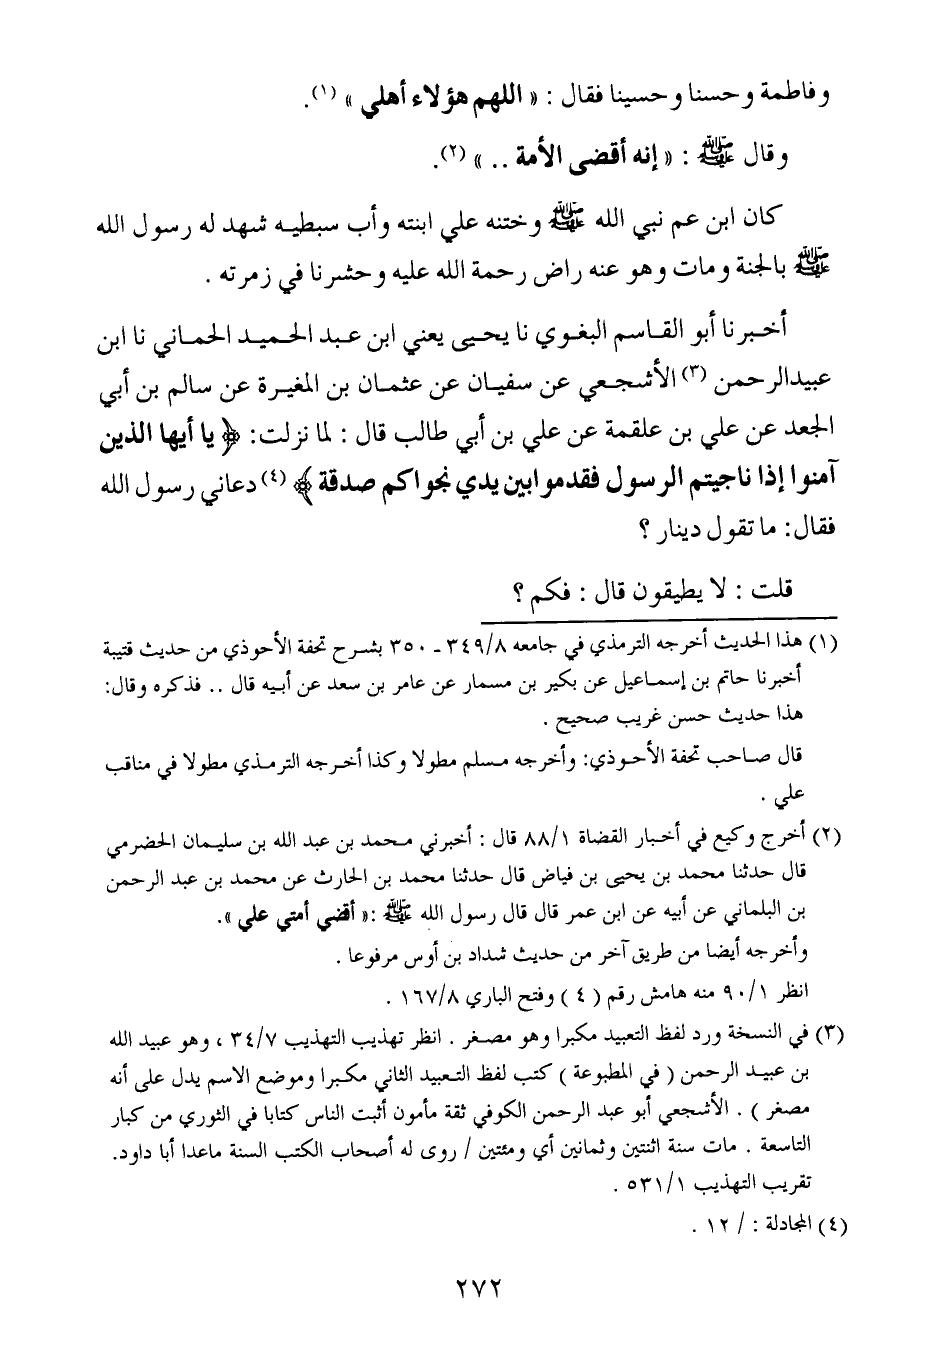 وفاطمة وحسنا وحسينا فقال : « اللهم هؤلاء أهلي » (١).
وقال ﷺ : « إنه أقضى الأمة .. » (٢).
كان ابن عم نبي الله ﷺ وختنه علي ابنته وأب سبطيه شهد له رسول الله
ﷺ بالجنة ومات وهو عنه راض رحمة الله عليه وحشرنا في زمرته .
أخبرنا أبو القاسم البغوي نا يحيى يعني ابن عبد الحميد الحماني نا ابن
عبيدالرحمن (٣) الأشجعي عن سفيان عن عثمان بن المغيرة عن سالم بن أبي
الجعد عن علي بن علقمة عن علي بن أبي طالب قال : لما نزلت: ﴿ يا أيها الذين
آمنوا إذا ناجيتم الرسول فقدموا بين يدي نجواكم صدقة ﴾ (٤) دعاني رسول الله
فقال: ما تقول دينار ؟
قلت : لا يطيقون قال : فكم ؟
(١) هذا الحديث أخرجه الترمذي في جامعه ٣٤٩/٨ ـ ٣٥٠ بشرح تحفة الأحوذي من حديث قتيبة
أخبرنا حاتم بن إسماعيل عن بكير بن مسمار عن عامر بن سعد عن أبيه قال .. فذكره وقال:
هذا حديث حسن غريب صحيح .
قال صاحب تحفة الأحوذي: وأخرجه مسلم مطولا وكذا أخرجه الترمذي مطولا في مناقب
علي .
(٢) أخرج وكيع في أخبار القضاة ٨٨/١ قال : أخبرني محمد بن عبد الله بن سليمان الحضرمي
قال حدثنا محمد بن يحيى بن فياض قال حدثنا محمد بن الحارث عن محمد بن عبد الرحمن
بن البلماني عن أبيه عن ابن عمر قال قال رسول الله ﷺ :« أقضي أمتي علي ».
وأخرجه أيضا من طريق آخر من حديث شداد بن أوس مرفوعا .
انظر ٩٠/١ منه هامش رقم ( ٤ ) وفتح الباري ١٦٧/٨ .
(٣) في النسخة ورد لفظ التعبيد مكبرا وهو مصغر . انظر تهذيب التهذيب ٣٤/٧ ، وهو عبيد الله
بن عبيد الرحمن ( في المطبوعة ) كتب لفظ التعبيد الثاني مكبرا وموضع الاسم يدل على أنه
مصغر ) . الأشجعي أبو عبد الرحمن الكوفي ثقة مأمون أثبت الناس كتابا في الثوري من كبار
التاسعة . مات سنة اثنتين وثمانين أي ومئتين / روى له أصحاب الكتب الستة ماعدا أبا داود.
تقريب التهذيب ٥٣١/١ .
(٤) المجادلة : / ١٢ .
٢٧٢